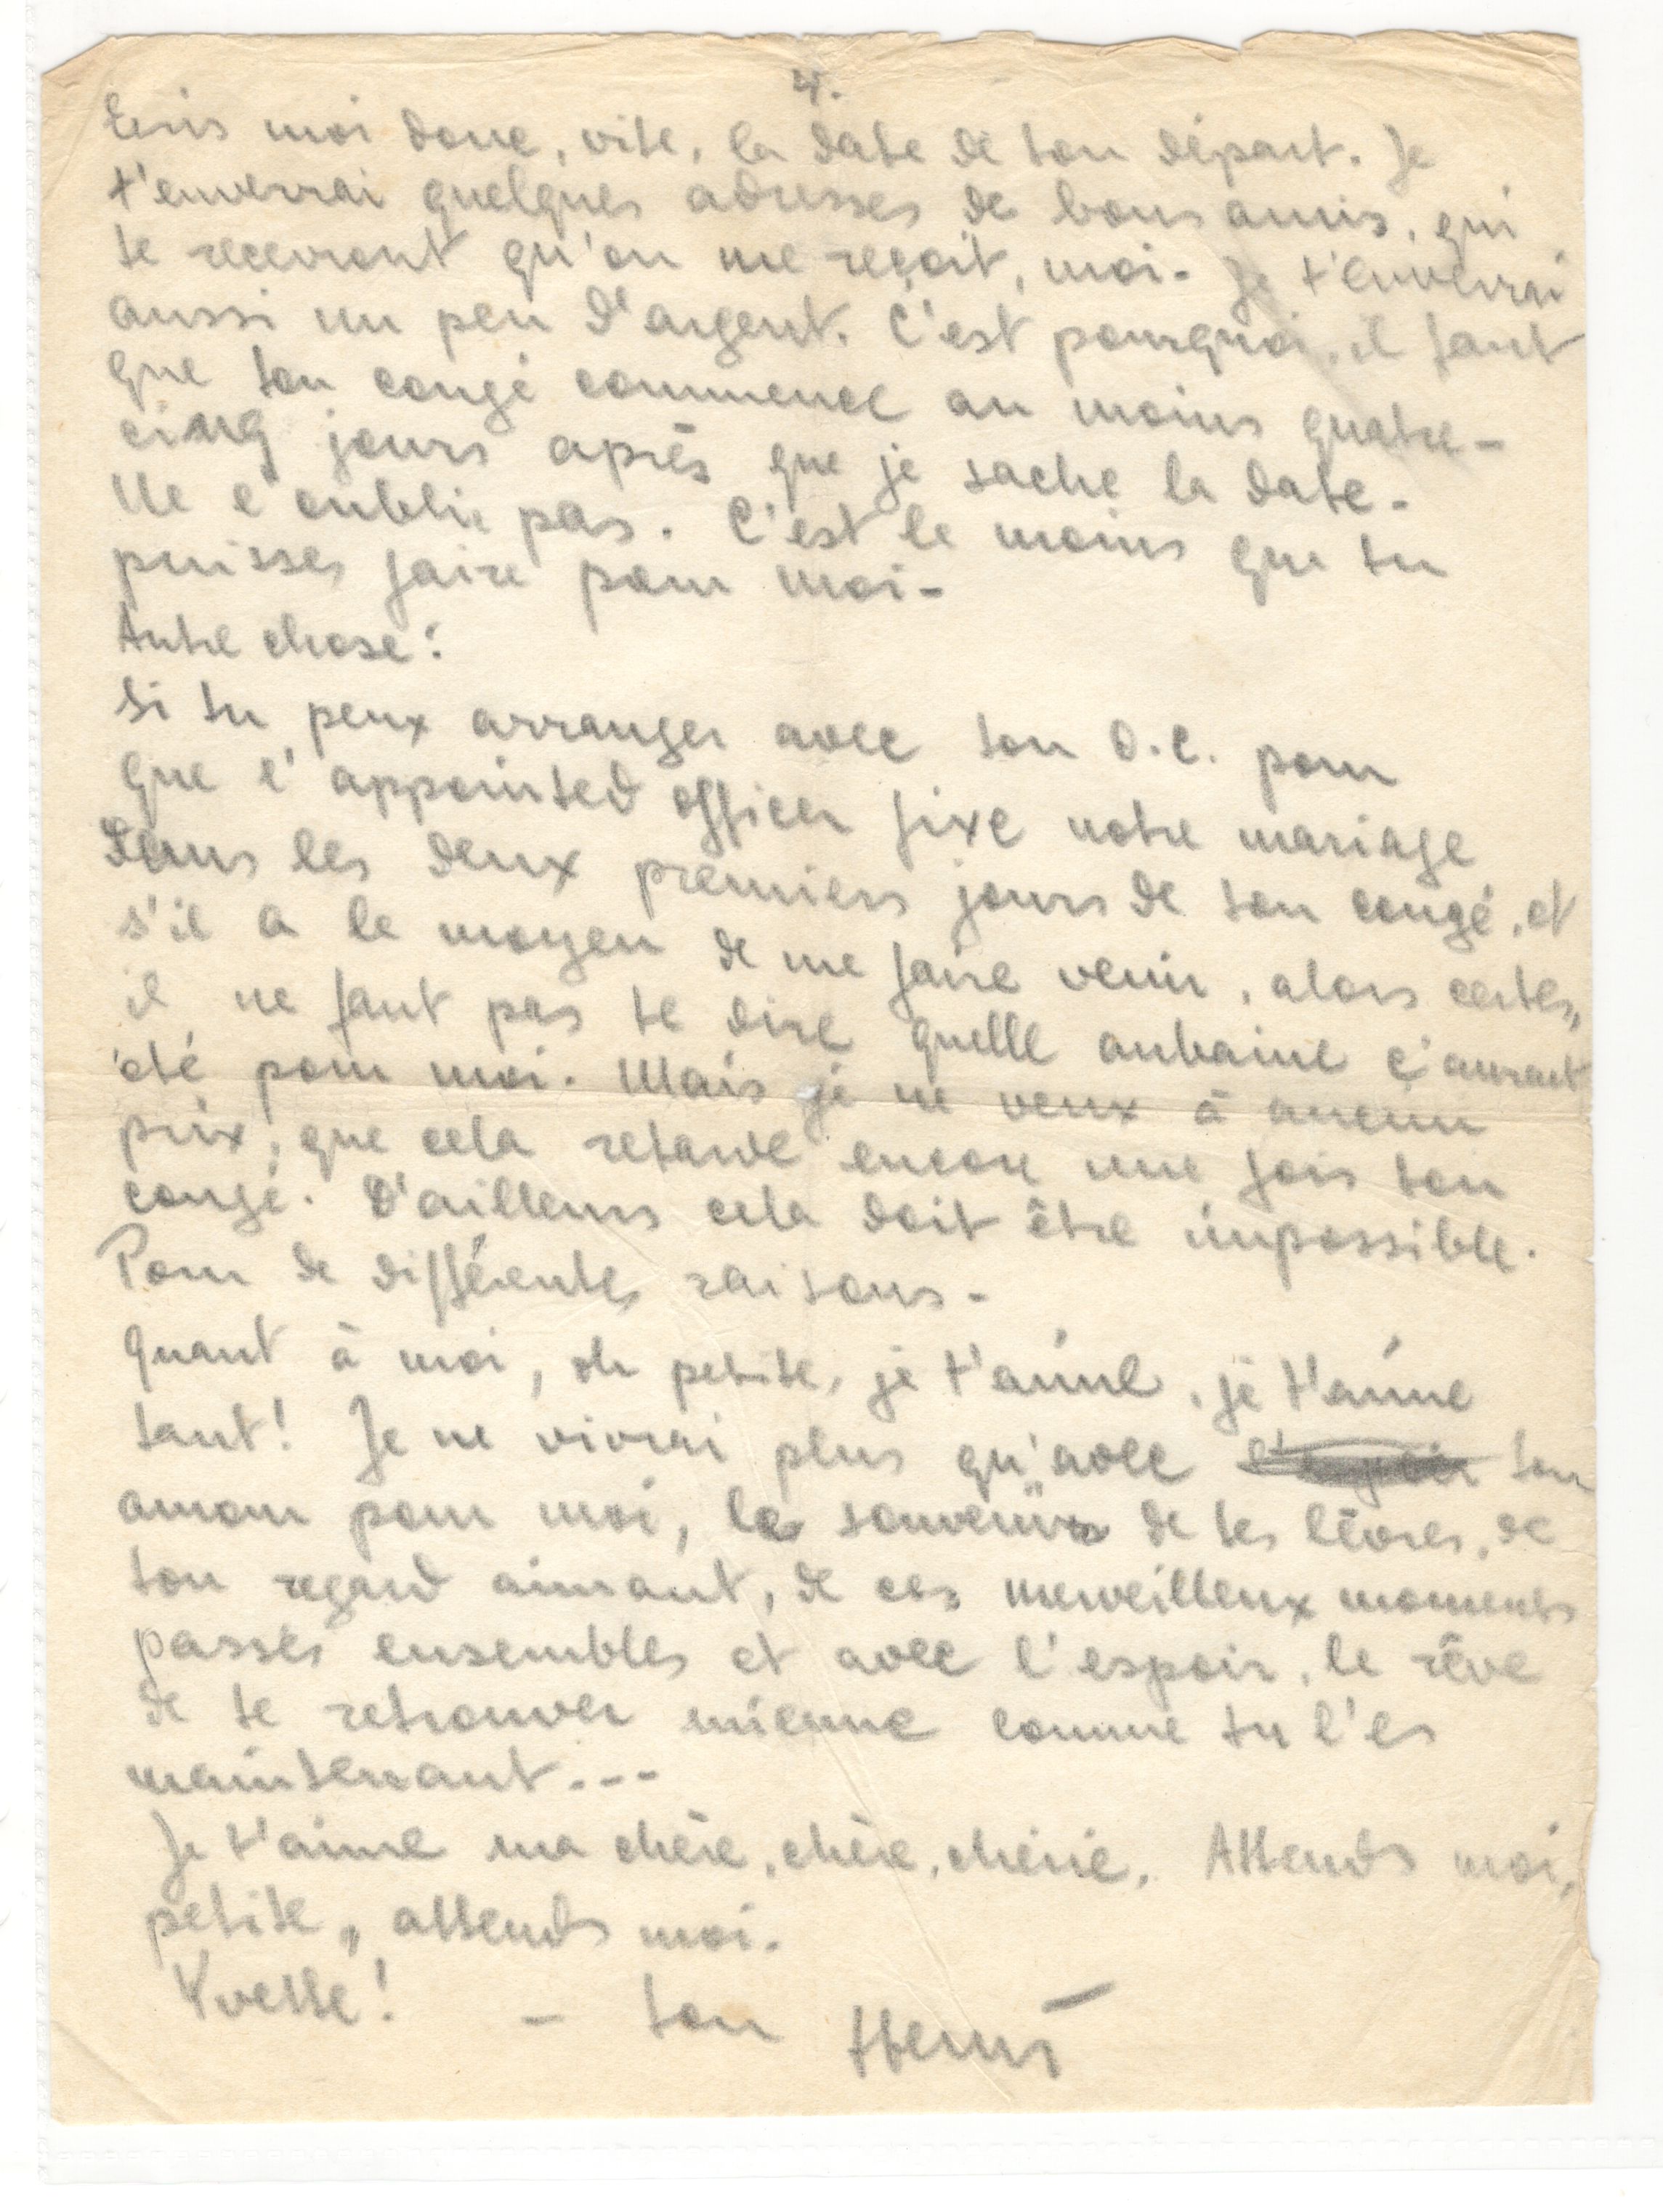 4.
Ecris moi donc, vite, la date de ton départ. Je
t'enverrai quelques adresses de bons amis, qui
te recevront qu'on me reçoit, moi. Je t'enverrai
aussi un peu d'argent. C'est pourquoi, il faut
que ton congé commence au moins quatre-
cinq jours après que je sache la date.
Ne l'oublie pas. C'est le moins que tu
puisses faire pour moi.
Autre chose:
Si tu peux arranger avec ton O.C. pour
que l'appointed officer fixe notre mariage
dans les deux premiers jours de ton congé, et
s'il a le moyen de me faire venir, alors certes,
il ne faut pas te dire quelle aubaine ç'aurait
été pour moi. Mais je ne veux à aucun
prix, que cela retarde encore une fois ton
congé. D'ailleurs cela doit être impossible.
Pour de différentes raisons.
Quant à moi, oh petite, je t'aime, je t'aime
tant! Je ne vivrai plus qu'avec ton
amour pour moi, le souvenir de tes lèvres, de
ton regard aimant, de ces merveilleux moments
passés ensembles et avec l'espoir, le rêve
de te retrouver mienne comme tu l'es
maintenant...
Je t'aime ma chère, chère, chérie. Attends moi,
petite, attends moi.
Yvette! - ton